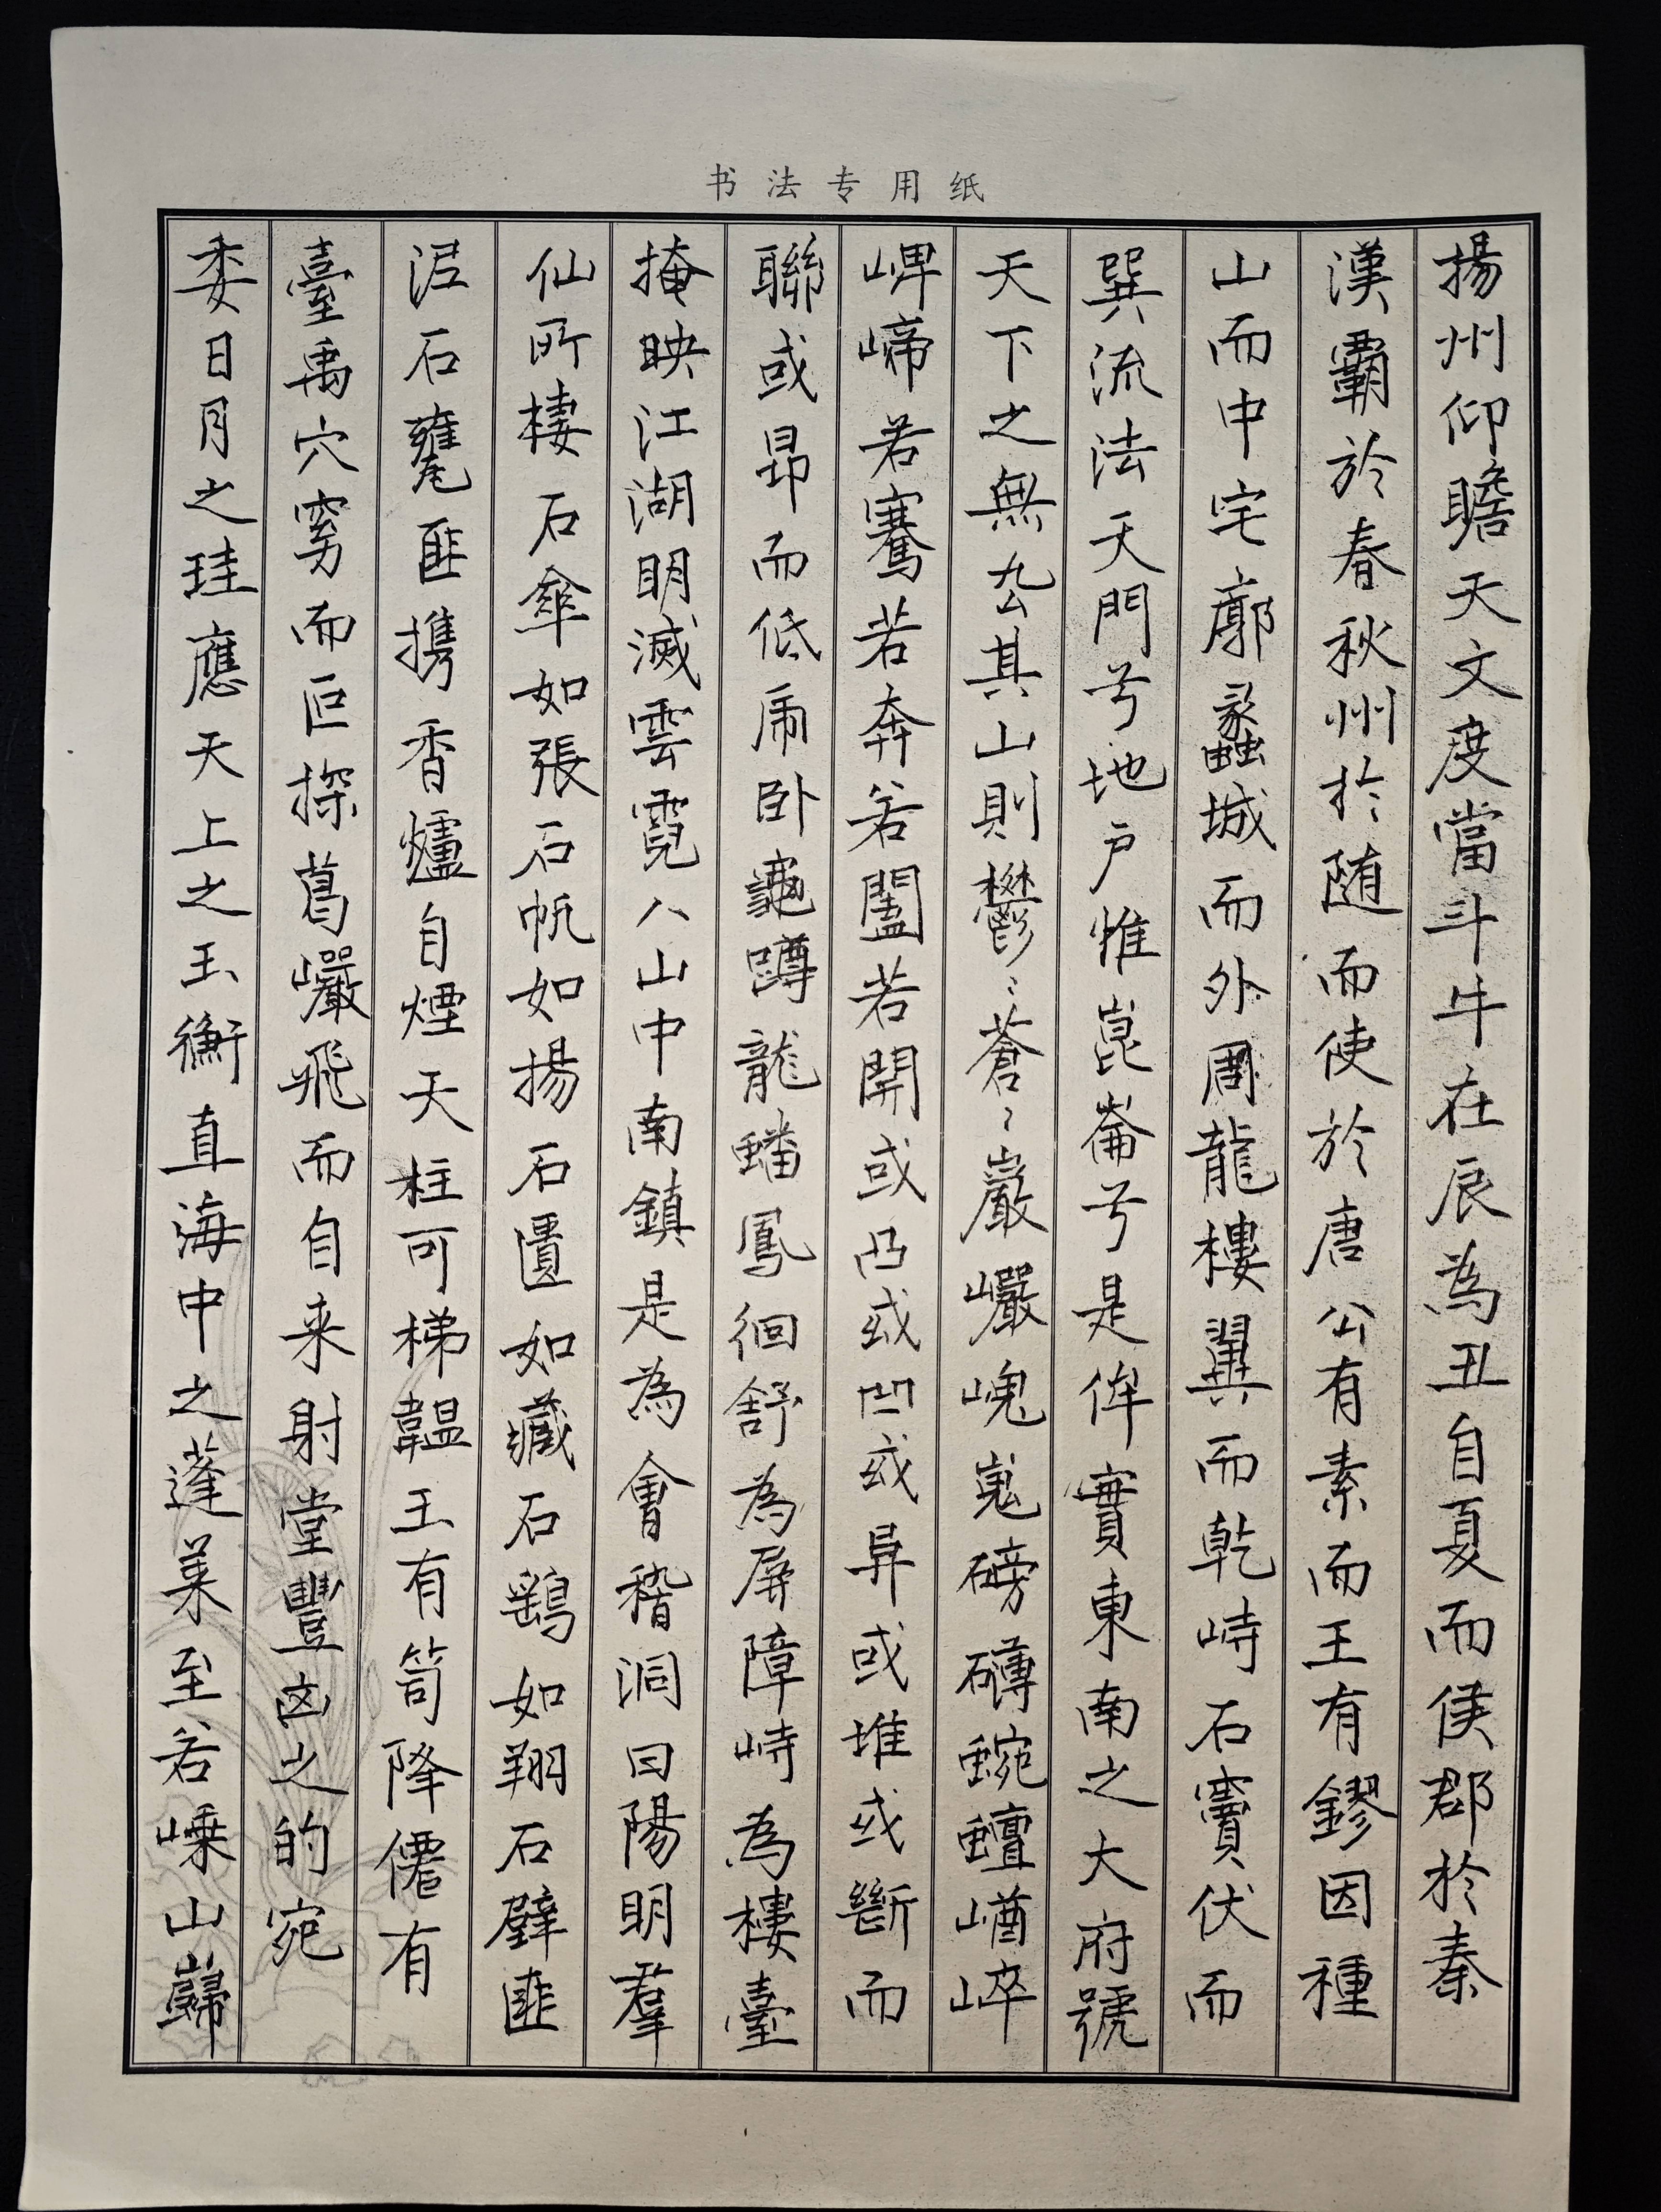 书法专用纸
揚州仰瞻天文度當斗牛在辰為丑自夏而侯郡於秦
漢霸於春秋州於随而使於唐公有素而王有鏐因種
山而中宅廓蠡城而外周龍樓翼而乾峙石竇伏而
巽流法天門兮地户惟崑崙兮是侔實東南之大府號
天下之無厷其山則鬱〻蒼〻巖巗嵬嵬磅礴蜿蟺崷崒
崥崹若騫若奔若闔若開或凸或凹或异或堆或斷而
聯或昂而低虎卧龜蹲龍蟠鳳徊舒為屏障峙為樓臺
掩映江湖明滅雲霓八山中南鎮是為會稽洞曰陽明羣
仙所棲石傘如張石帆如揚石匱如藏石鷂如翔石壁匪
泥石甕匪攜香爐自煙天柱可梯韞玉有笥降僊有
臺禹穴窈而叵探葛巗飛而自来射堂豐凶之的宛
委日月之珪應天上之玉衡直海中之蓬莱至若嵊山巋